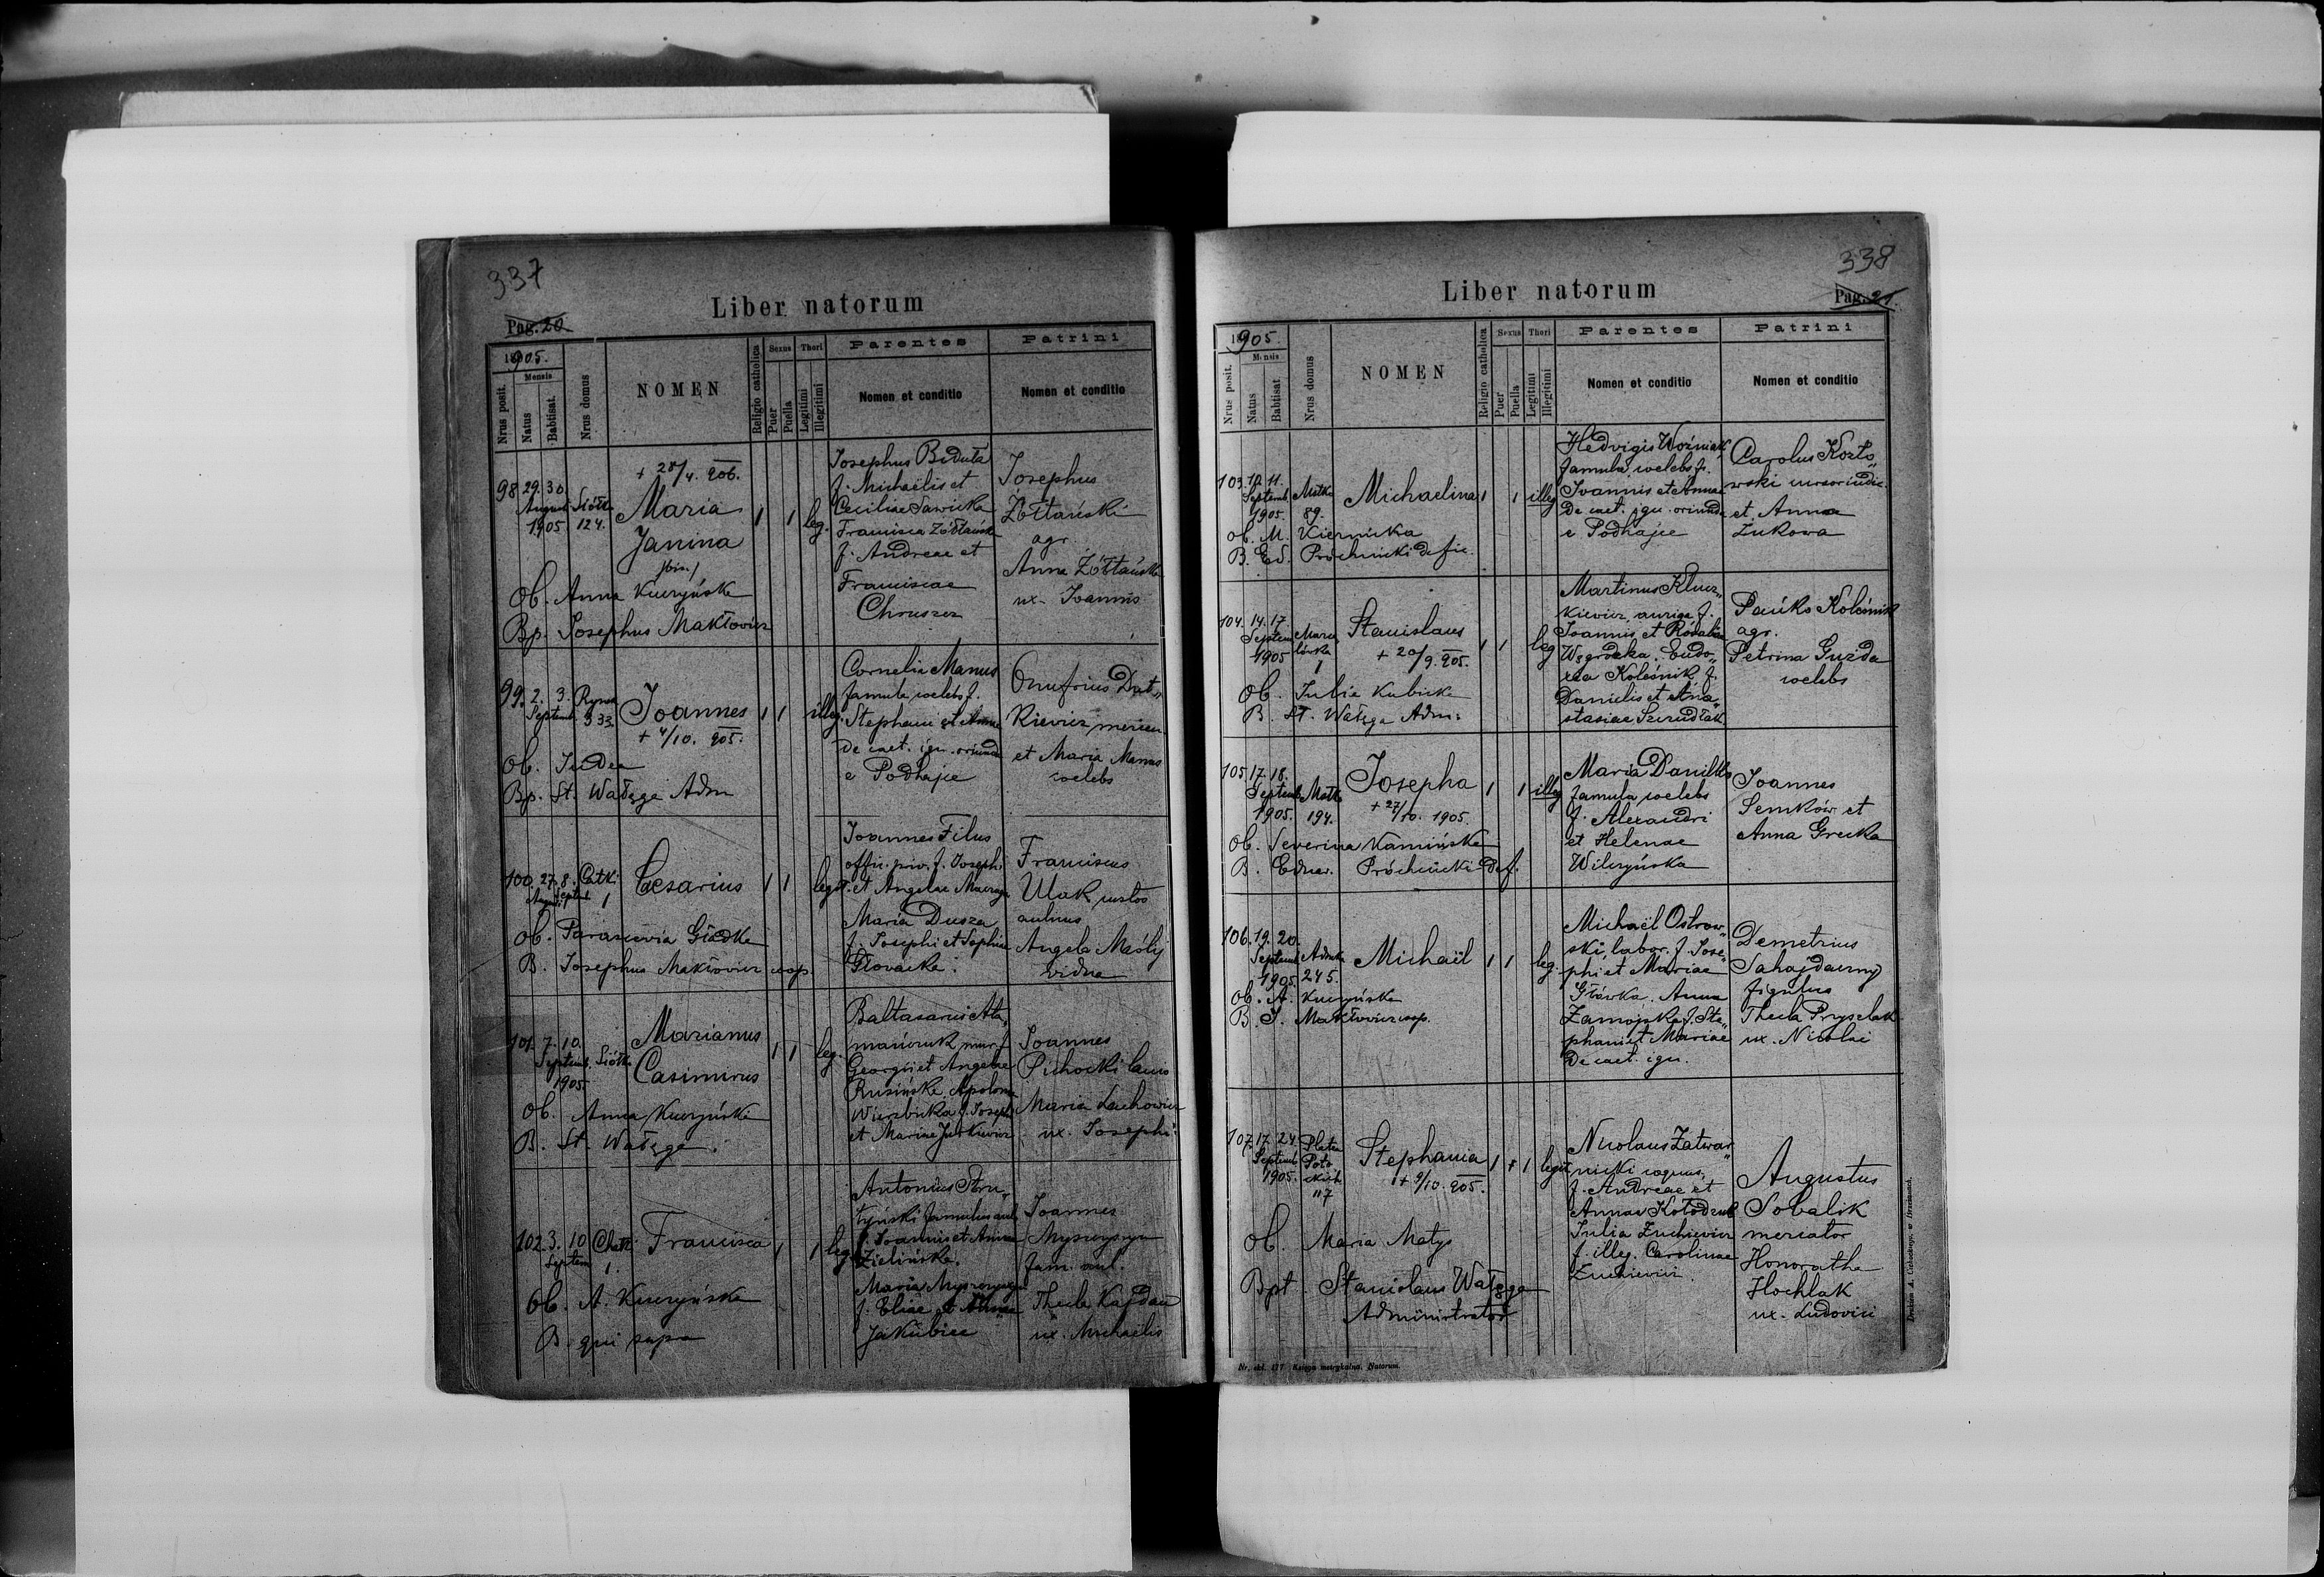 337
Liber natorum
Pag. 20
1905.
Mensis
Nrus posit.
Natus
Babtisat.
Nrus domus
NOMEN
Religio catholica
Sexus
Puer
Puella
Thori
Legitimi
Illegitimi
Parentes
Nomen et conditio
Patrini
Nomen et conditio
98 29. 30
August Siółko
1905 124.
+ 28/4. 906.
Maria
Janina
/bin./
1 1 leg.
Josephus Biduła
f. Michaëlis et
Ceciliae Sawicka
Francisca Żółtańska
f. Andreae et
Franciscae
Chruszcz
Josephus
Żółtański
agr.
Anna Żółtańska
ux. Joannis
Ob. Anna Kuczyńska
Bp. Josephus Makłowicz
99. 2. 3. Rynek
Septemb. 333.
Joannes
+ 4/10. 905.
1 1 illeg.
Cornelia Manus
famula coelebs f.
Stephani et Annae
De caet. ign. oriunda
e Podhajce
Onufrius Dut„
kiewicz mercen.
et Maria Manus
coelebs
Ob. Judea
Bp. St. Wałęga Adm
100. 27. 8. Catki
August Septemb 1
Cesarius
1 1 legit.
Joannes Filus
offic. priv. f. Josephi
et Angelae
Maria Dusza
f. Josephi et Sophiae
Głowacka.
Franciscus
Ulak custos
aulicus
Angela
vidua
Ob. Parascevia Gładka
B. Josephus Makłowicz coop.
101. 7. 10.
Septemb. Siółko
1905
Marianus
Casimirus
1 1 leg.
Baltasarus Ata„
mańczuk mur. f.
Georgii et Angelae
Rusińska, Apolonia
Wierzbicka f. Josephi
et Mariae Jurkiewicz
Joannes
Pichocki lanio
Maria Lachowicz
ux. Josephi.
Ob. Anna Kuczyńska
B. St. Wałęga.
102 3. 10
Septem 1.
Francisca
1 1 leg
Antonius Stru„
tyński famulus aul.
f. Joannis et Annae
Zielińska.
Maria Myszczyszyn
f. Eliae et Annae
Jakubiec
Joannes
Myszczyszyn
fam. aul.
Thecla Kajdan
ux. Michaëlis
Ob. A. Kuczyńska
B. qui supra
338
Liber natorum
Pag. 21.
1905
Mensis
Nrus posit.
Natus
Babtisat
Nrus domus
NOMEN
Religio catholica
Sexus
Puer
Puella
Thori
Legitimi
Illegitimi
Parentes
Nomen et conditio
Patrini
Nomen et conditio
103. 10. 11.
Septemb. Miatko
1905. 89.
Michaelina
1 1 illeg
Hedvigis Woźniak
famula coelebs f.
Joannis et Annae
De caet. ign. oriunda
e Podhajce
Carolus Kozło„
wski cursor iudic.
et Anna
Żukowa
Ob. M. Kiernicka
B. Ed. Próchnicki defic.
104. 14. 17.
Septem
1905 1
Stanislaus
+ 20/9. 905.
1 1 leg
Martinus Klucz„
kiewicz auriga f.
Joannis et Rosaliae
Węgrocka. Eudo„
xia Koleśnik f.
Danielis et Ana„
stasiae Szrudłak
Pańko Koleśnik
agr.
Petrina Guzda
coelebs
Ob. Julia Kubicka
B. St. Wałęga Adm.
105 17. 18.
Septemb Miatko
1905. 194.
Josepha
+ 27/10. 1905.
1 1 illeg
Maria Daniłko
famula coelebs
f. Alexandri
et Helenae
Wilczyńska
Joannes
Semków et
Anna Grecka
Ob. Severina Kamińska
B. Eduar. Próchnicki Def.
106. 19. 20.
Septemb
1905. 245.
Michaël
1 1 leg.
Michaël Ostrow„
ski, labor. f. Jose„
phi et Mariae
Główka. Anna
Zamojska f. Ste„
phani et Mariae
De caet. ign.
Demetrius
Sahajdaczny
figulus
Thecla Pryszlak
ux. Nicolai
Ob. A. Kuczyńska
B. J. Makłowicz coop.
107. 17. 24. Platea
Septemb Poto
1905. ckich
117
Stephania
+ 9/10. 905.
1 1 legit
Nicolaus Zatwar„
nicki coquus,
f. Andreae et
Annae Kołodzub
Julia Zuchiewicz
f. illeg. Carolinae
Zuchiewicz.
Augustus
Sobalik
mercator
Honoratha
Hochlak
ux. Ludovici
Ob. Maria Matys
Bpt. Stanislaus Wałęga
Administrator
Nr. skl. 177. Księga metrykalna. Natorum.